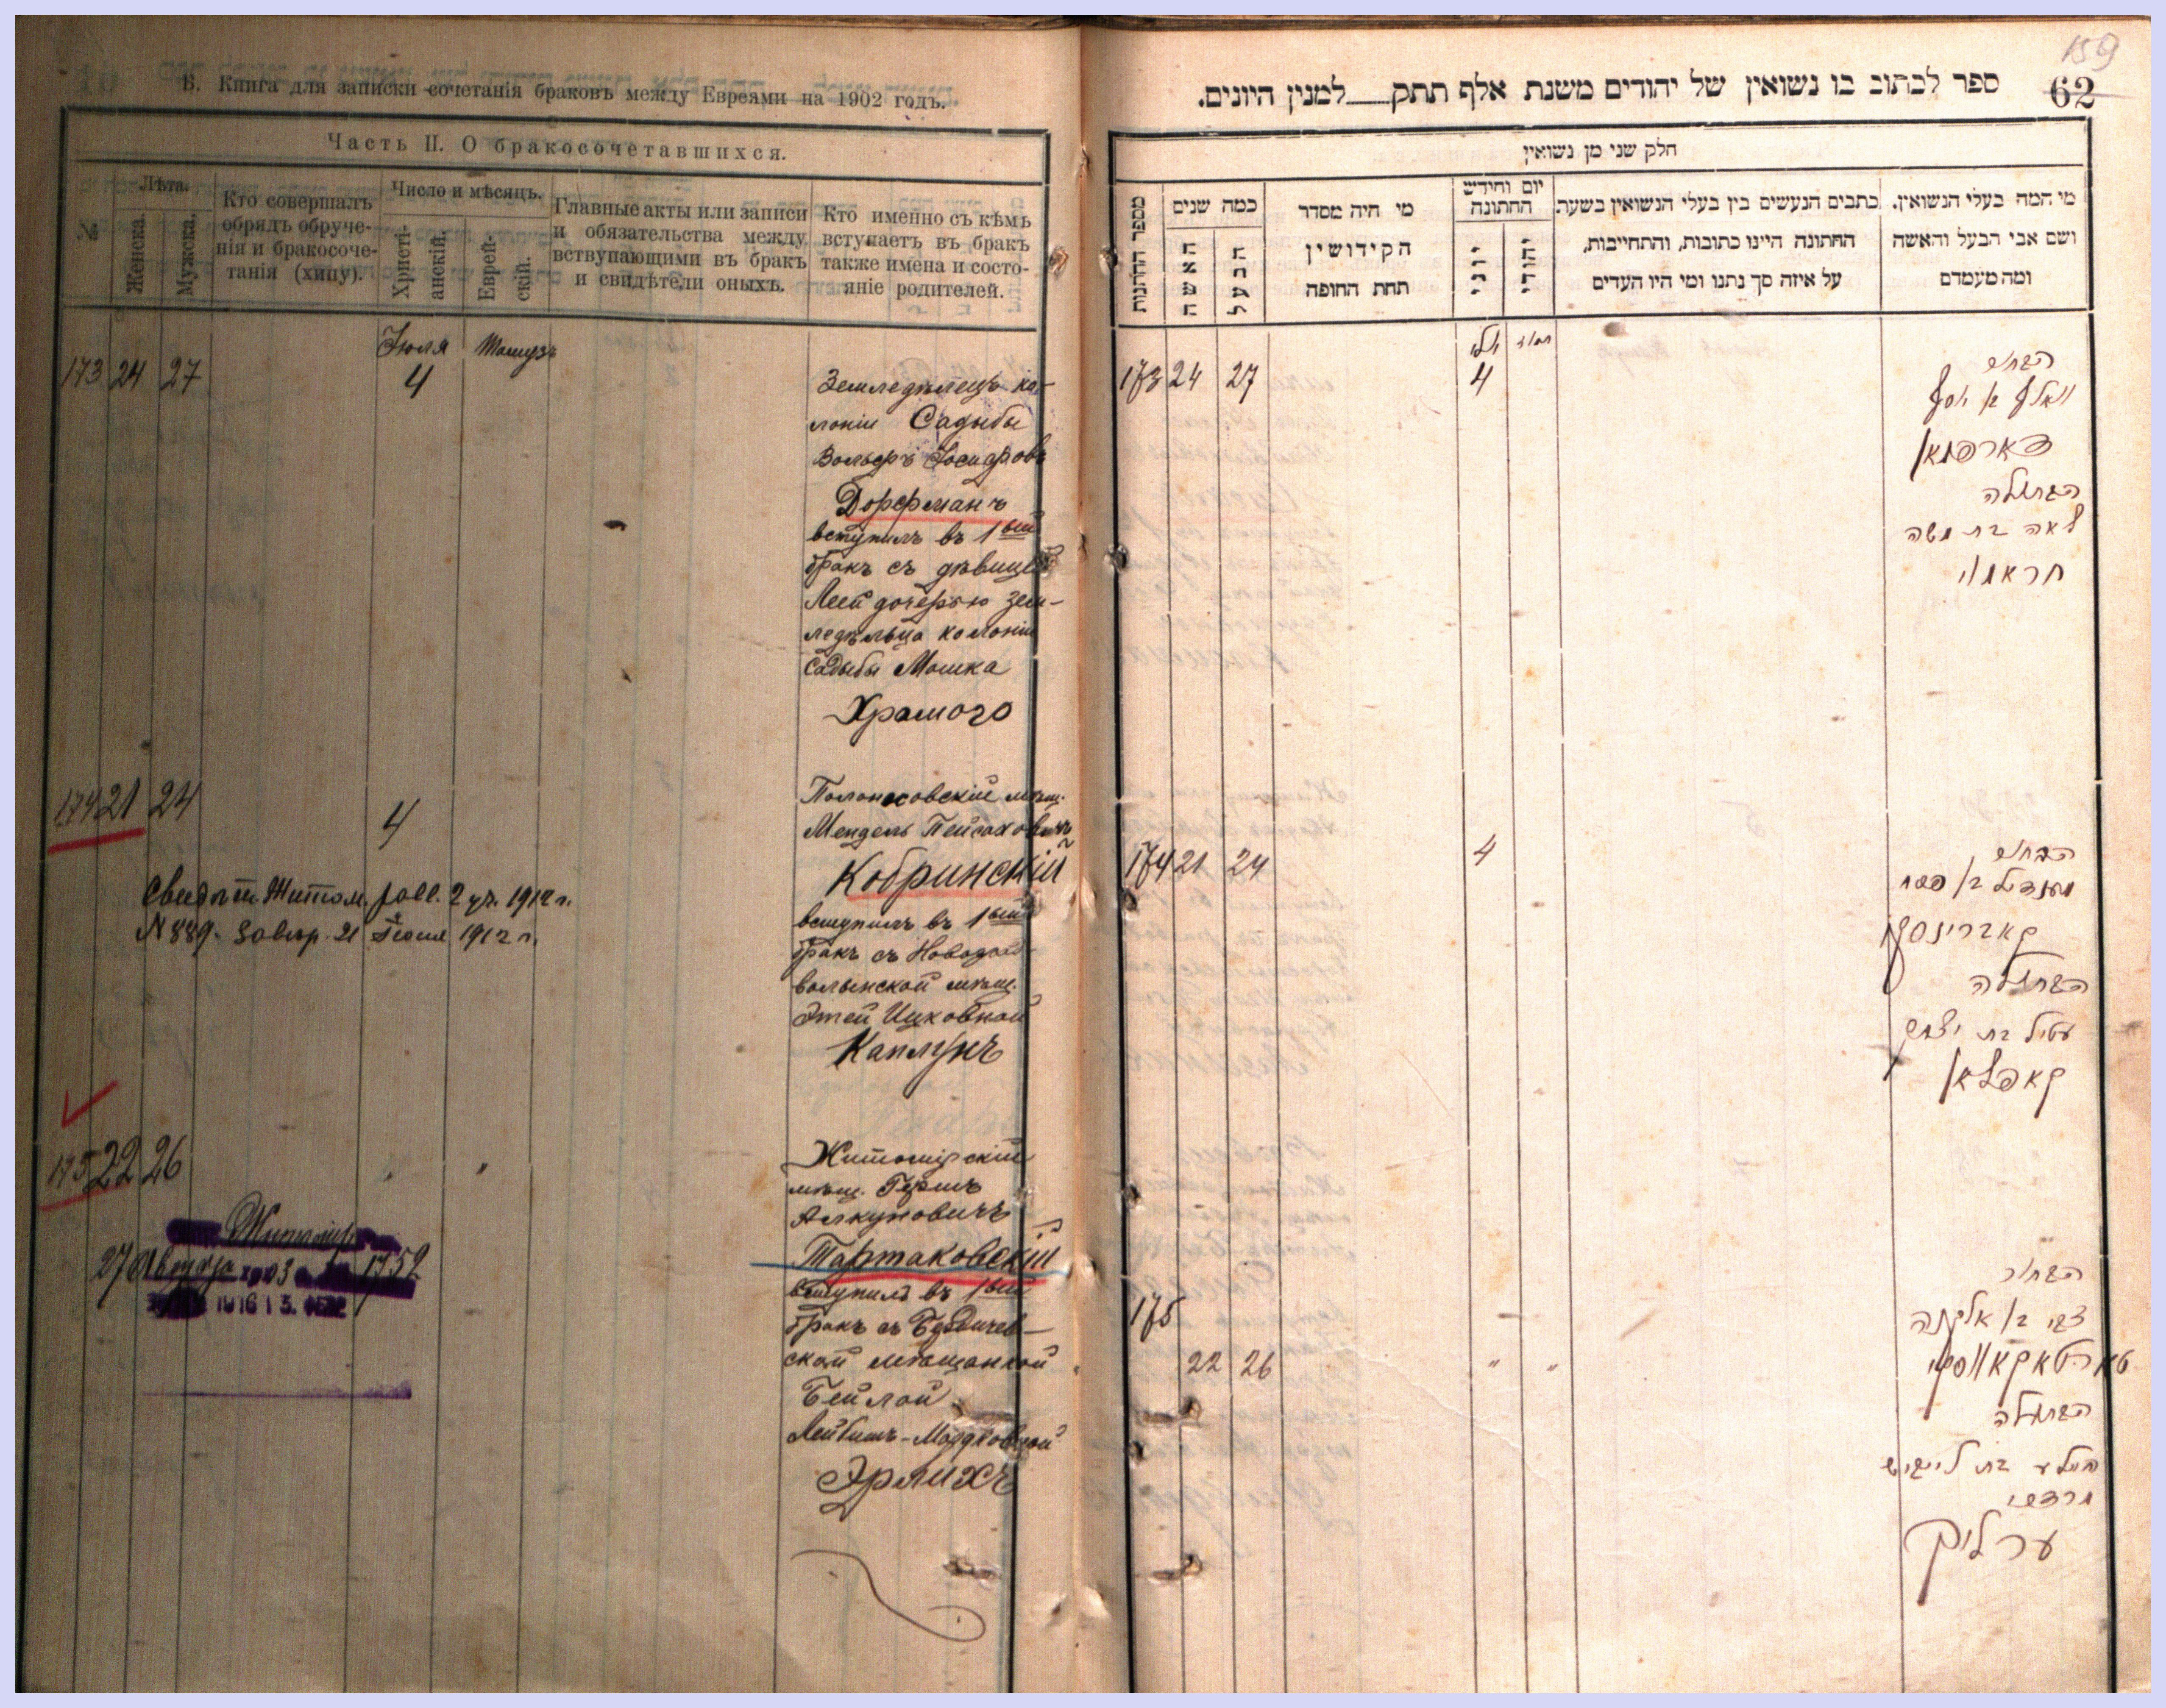 Б. Книга для записки сочетанія браковъ между Евреями на 1902 годъ.
Часть II. О бракосочетавшихся.
№
Лѣта.
Женска.
Мужска.
Кто совершалъ
обрядъ обруче-
нія и бракосоче-
танія (хипу).
Число и мѣсяцъ.
Христі-
анскій.
Еврей-
скій.
Главные акты или записи
и обязательства между
вствупающими въ бракъ
и свидѣтели оныхъ.
Кто именно съ кѣмъ
вступаетъ въ бракъ
также имена и состо-
яніе родителей.
Іюля
173 24 27 4
Земледѣлецъ ко-
лоніи Садыбы
Вольфъ Іосифовъ
Дорфманъ
вступилъ въ 1ый
бракъ съ дѣвицей
Леей дочерью зем-
ледѣльца колоніи
Садыбы Мошка
Храмого
174 21 24 4
мѣщ.
Мендель Пейсаховичъ
Кобринскій
вступилъ въ 1ый
бракъ съ Новоград-
волынской мѣщ.
Этей Ицковной
Капл
Свидѣт. Житом. 2 1912 г.
N 889. завѣр. 21 Іюня 1912 г.
175 22 26
Житомірскій
мѣщ. Гершъ
Алкуновичъ
Тартаковскій
вступилъ въ 1ый
бракъ съ Бердичев-
ской мѣщанкой
Бейлой
Лейбишъ-Мордковной
Эрлихъ
27 1752
159
62
ספר לכתוב בו נשואין של יהודים משנת אלף תתק למנין היונים.
חלק שני מן נשואין
מספר החתונות
כמה שנים
האשה
הבעל
מי היה מסדר
הקידושין
תחת החופה
יום וחידש
החתונה
יוני
יהודי
כתבים הנעשים בין בעלי הנשואין בשעת
החתונה היינו כתובות, והתחייבות,
על איזה סך נתנו ומי היו העדים
מי המה בעלי הנשואין.
ושם אבי הבעל והאשה
ומה מעמדם
יולי תמוז
173 24 27 4
הבחור
וואלף בן יוסף
דארפמאן
הבתולה
לאה בת משה
חראמוי
174 21 24 4
הבחור
מענדיל בן פסח
קאברינסקי
הבתולה
עטיל בת יצחק
קאפלאן
175
22 26 " "
הבחור
צבי בן אלקנה
טארטאקאווסקי
הבתולה
ביילע בת לייביש
מרדכי
ערליך